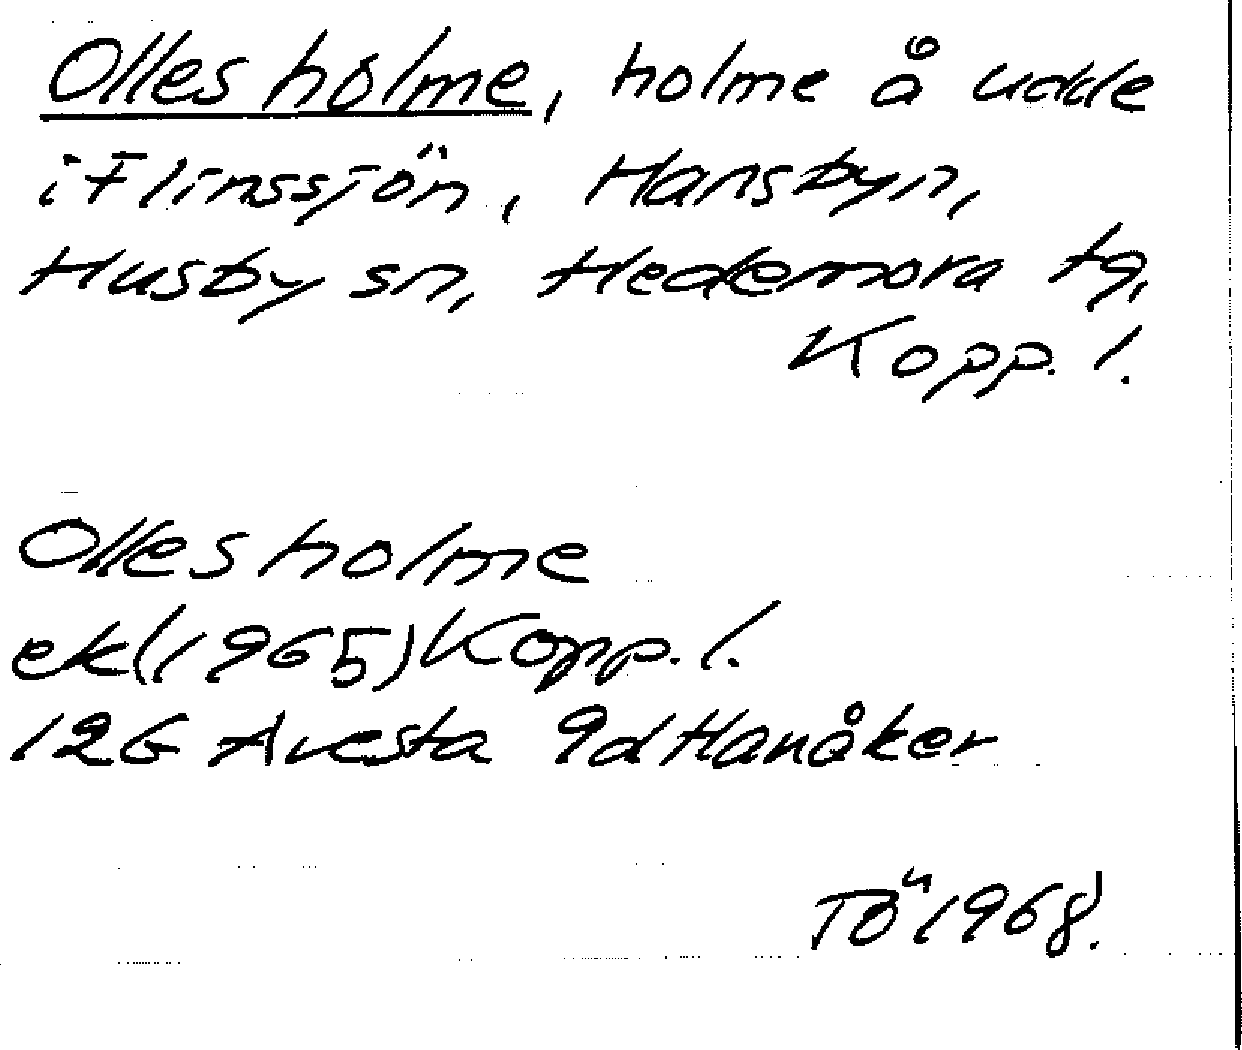 Olles holme, holme å udde
i Flinssjön, Hansbyn,
Husby sn, Hedemora tg,
Kopp. l.
Olles holme
ek (1965) Kopp. l.
12G Avesta 9d Hanåker
TÖ 1968.